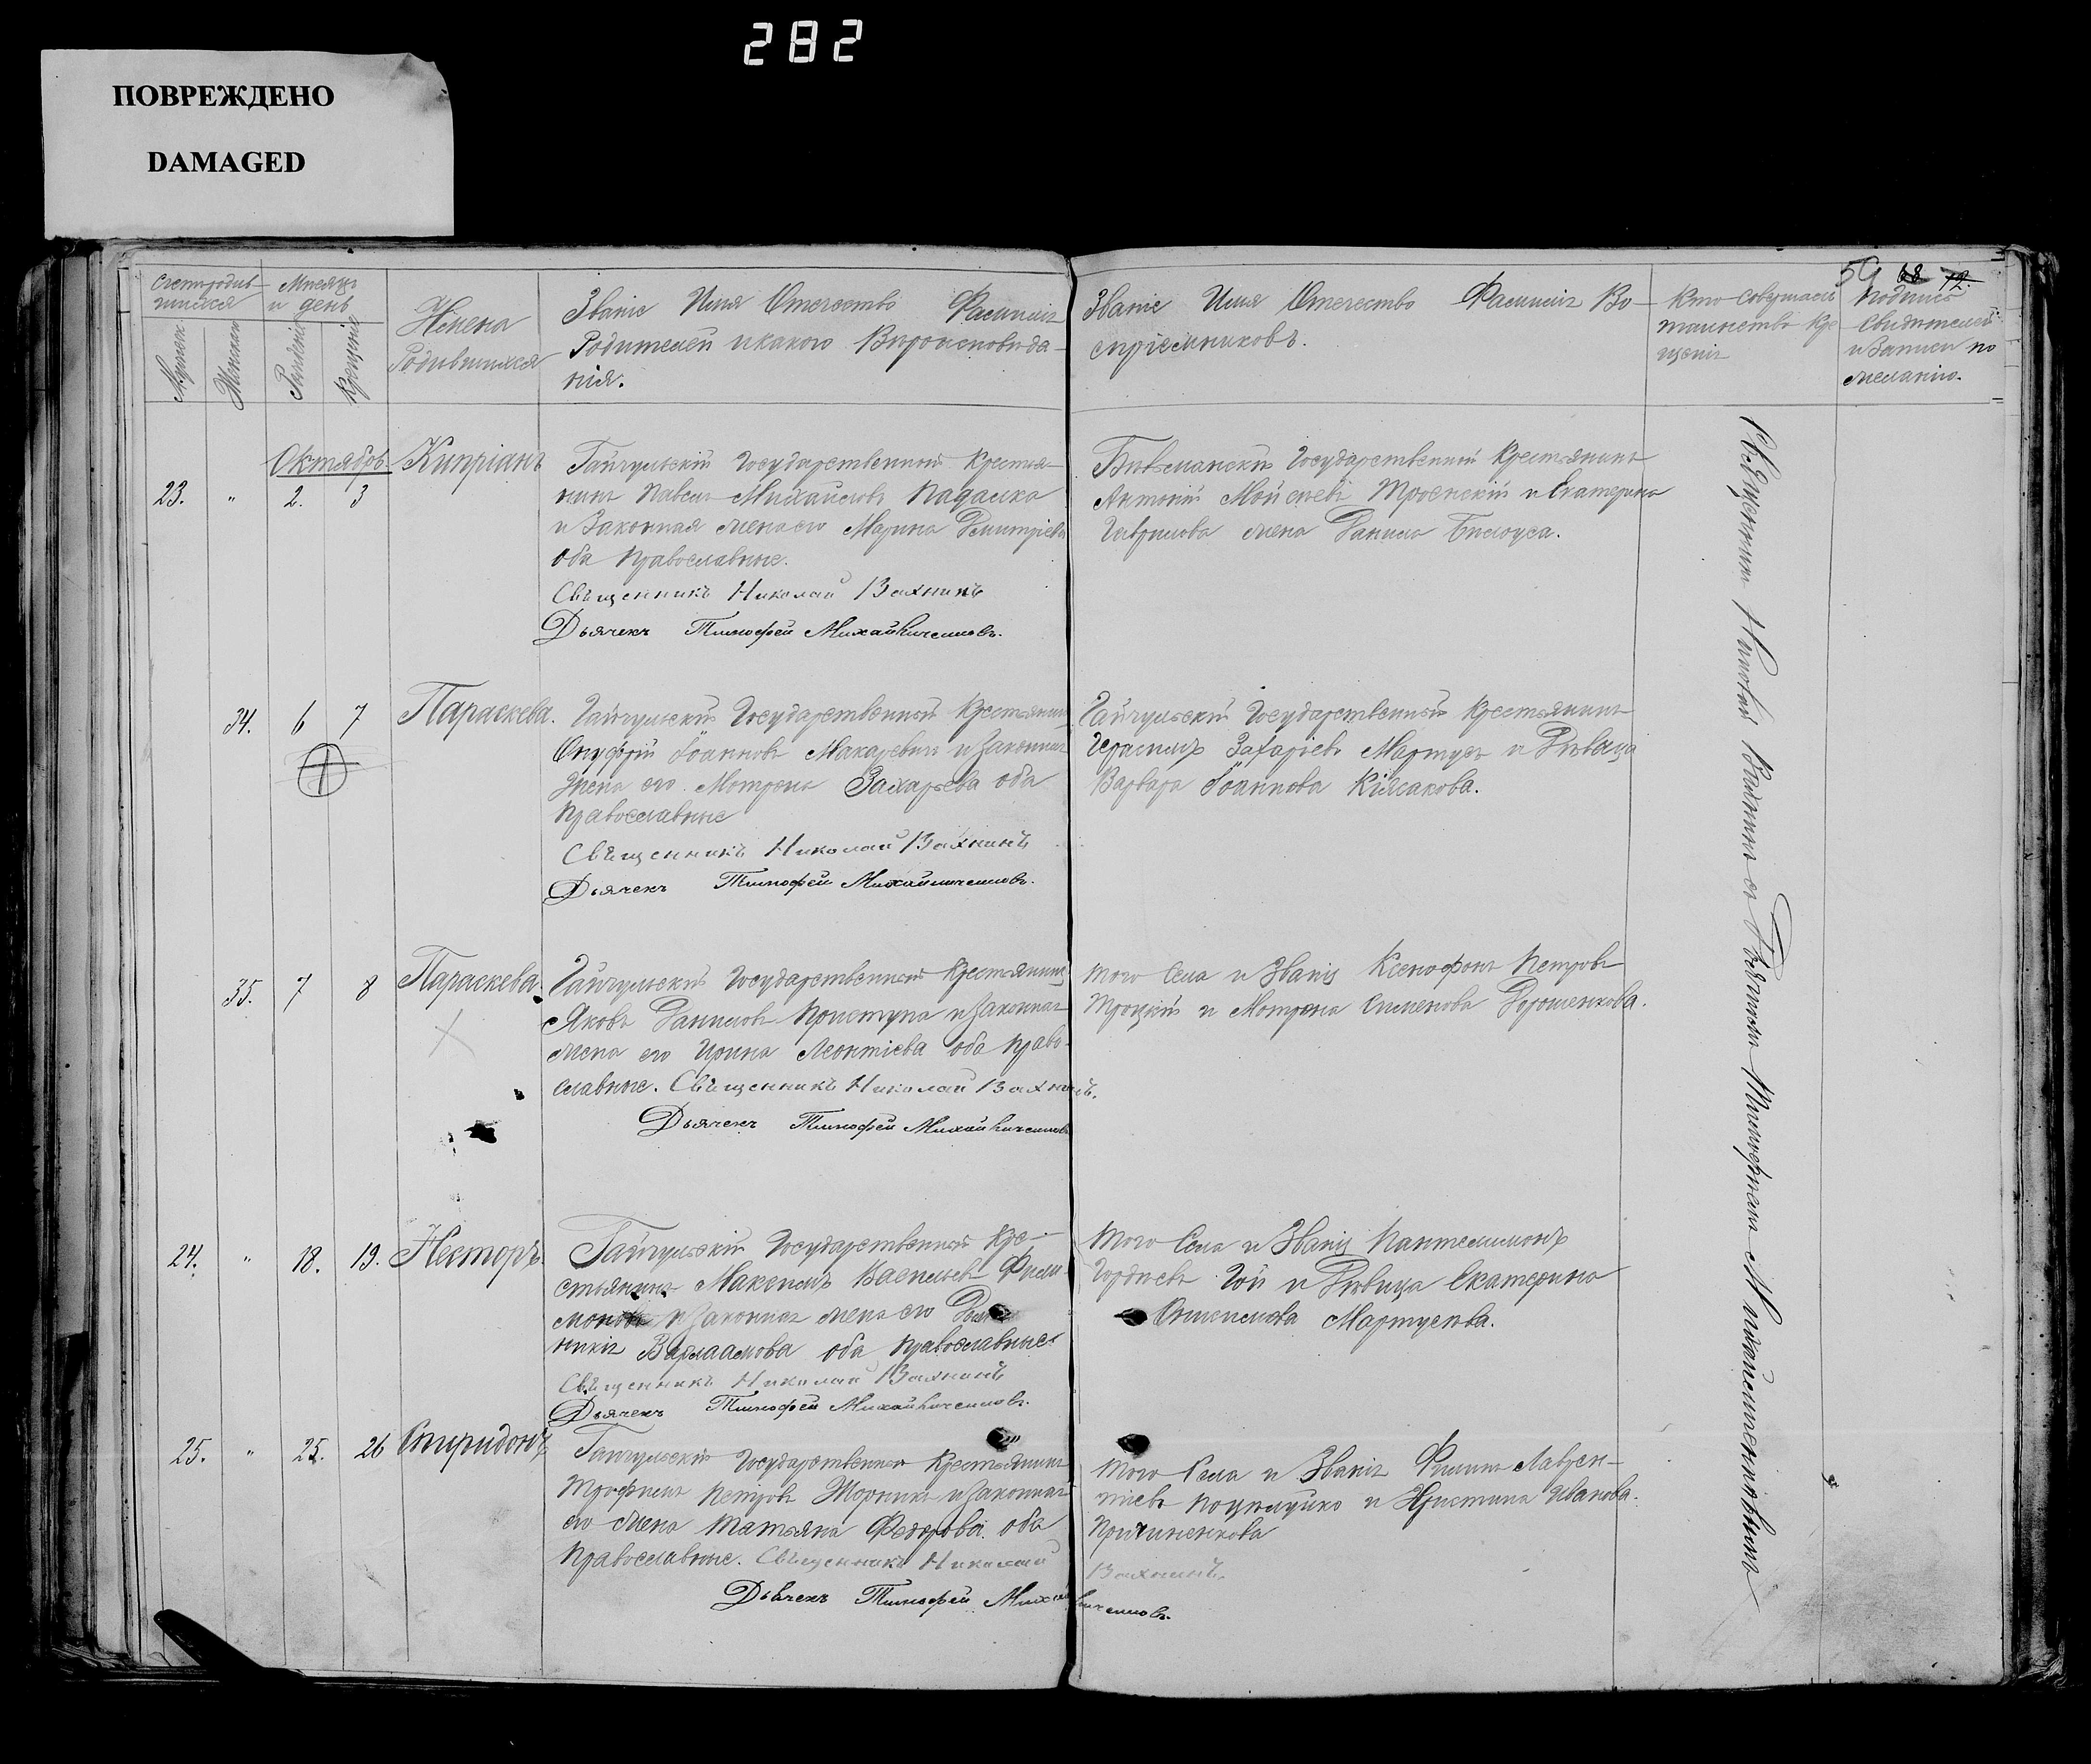 282
ПОВРЕЖДЕНО
DAMAGED
59 68 72.
Счетъ родив-
шихся
Мѣсяцъ
и день
Имена
Родившихся
Званіе Имя Отчество Фамилія
Родителей и какого Вѣроисповѣда-
нія.
Званіе Имя Отчество Фамилія Во-
спріемниковъ.
Кто совершалъ
таинство Кре
щенія
Подпись
Свидѣтелей
и Записи по
желанію.
Мужескъ
Женскъ
Рожденіе
Крещеніе
Октябрь
23. " 2. 3
Кипріанъ
Гайчульскій Государственный Крестья-
нинъ Павелъ Михайловъ Падалка
и Законная жена его Марина Дмитріева
оба Православные.
Священникъ Николай Вахнинъ
Дьячекъ Тимофей
Государственный Крестьянинъ
Антоній Моисеевъ Троенскій и Екатерина
Гаврилова жена Данила Билоуса.
34. 6 7
Параскева.
Гайчульскій Государственный Крестьянинъ
Онуфрій Іоанновъ Макаревичъ и Законная
Жена его Мотрона Захарьева оба
Православные
Священникъ Николай Вахнинъ
Дьячекъ Тимофей
Гайчульскій Государственный Крестьянинъ
Герасимъ Захаріевъ Мартусъ и Дѣвица
Варвара Іоаннова
35. 7 8
Параскева.
Гайчульскій Государственный Крестьянинъ
Яковъ Даниловъ Приступа и Законная
жена его Ирина Леонтіева оба Право-
славные. Священникъ Николай Вахнинъ.
Дьячекъ Тимофей
Того Села и Званія Ксенофонъ Петровъ
Троцкій и Мотрона Симеонова Дорошенкова.
24. " 18. 19.
Несторъ.
Гайчульскій Государственный Кре-
стьянинъ Максимъ Васильевъ
и Законная жена его
Варлаамова оба Православные
Священникъ Николай Вахнинъ
Дьячекъ Тимофей
Того Села и Званія Пантелимонъ
Гордѣевъ Гой и Дѣвица Екатерина
Мартусова.
25. " 25. 26
Спиридонъ
Гайчульскій Государственный Крестьянинъ
Трофимъ Петровъ и Законная
его Жена Татьяна Федорова оба
Православные. Священникъ Николай
Вахнинъ.
Дьячекъ Тимофей
Того Села и Званія Филипъ Лаврен-
тіевъ и Христина Иванова
Священникъ Николай Вахнинъ съ Дьячкомъ Тимофеемъ